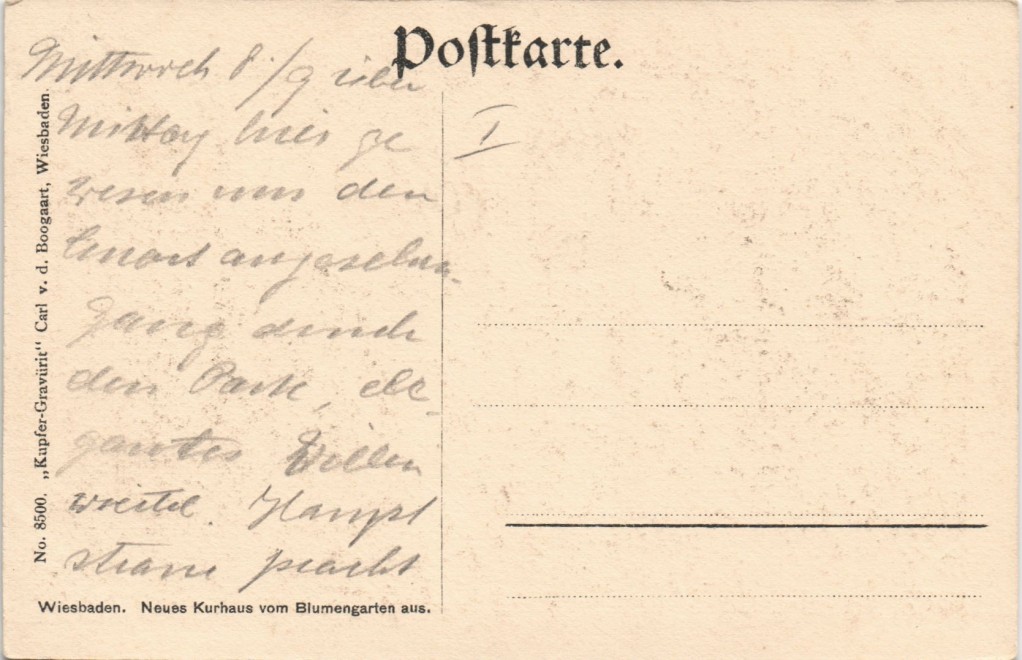 Postkarte.
Mittwoch 8./9 über
Mittag hier ge
wesen um den
Kurort angesehen
Gang durch
den Park, ele
gantes Villen
viertel. Haupt
strasse pracht
I
No. 8500. „Kupfer-Gravürit“ Carl v. d. Boogaart, Wiesbaden.
Wiesbaden. Neues Kurhaus vom Blumengarten aus.